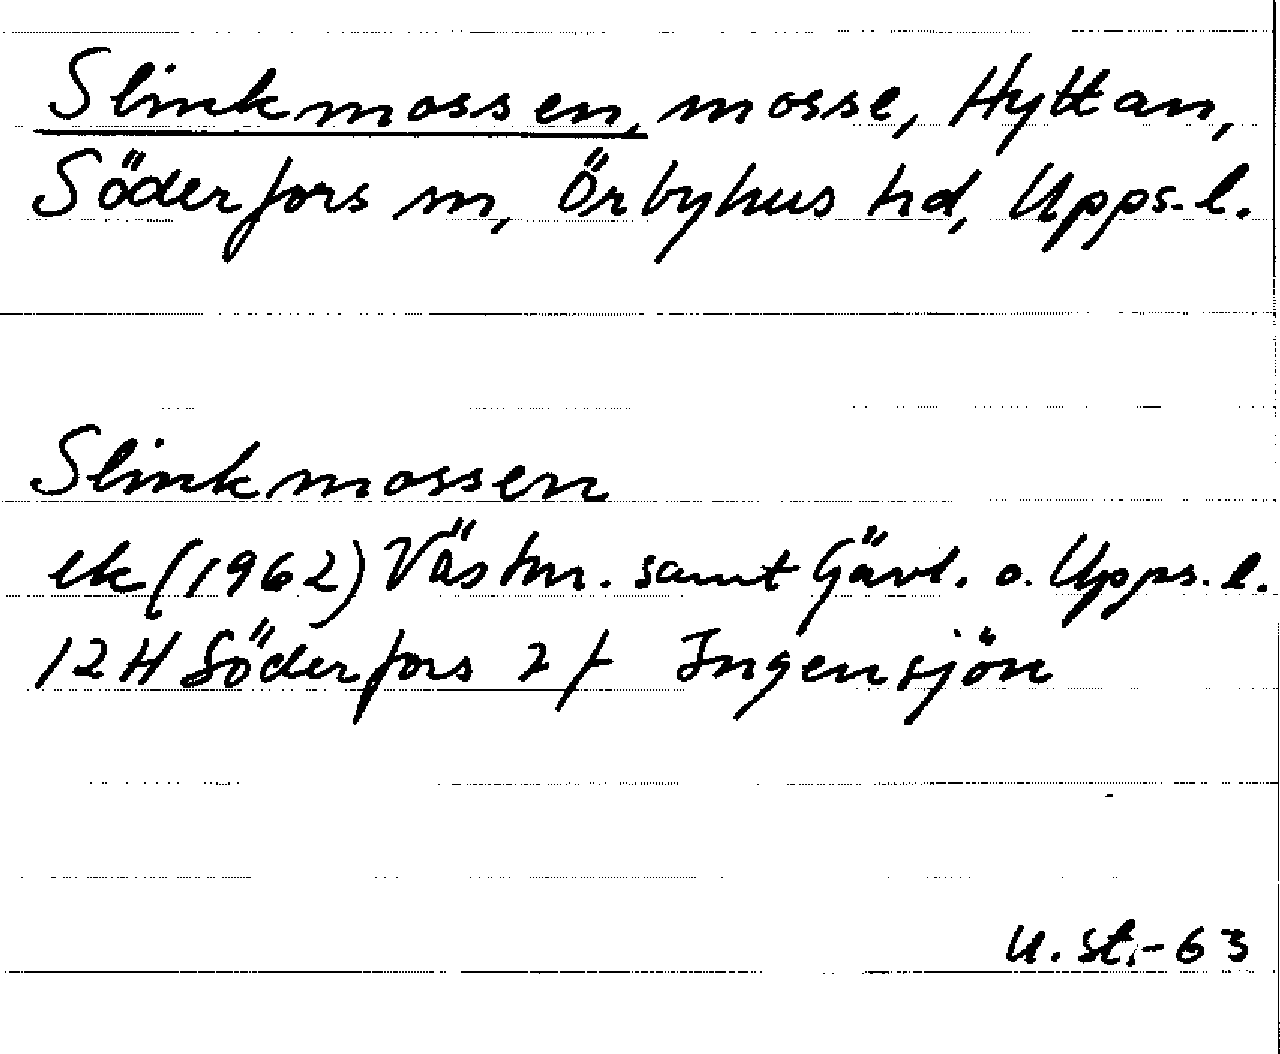 Slinkmossen, mosse, Hyttan,
Söderfors sn, Örbyhus hd, Upps. l.
Slinkmossen
ek (1962) Västm. samt Gävl. o. Upps. l.
12H Söderfors 2f Ingensjön
U. st. -63